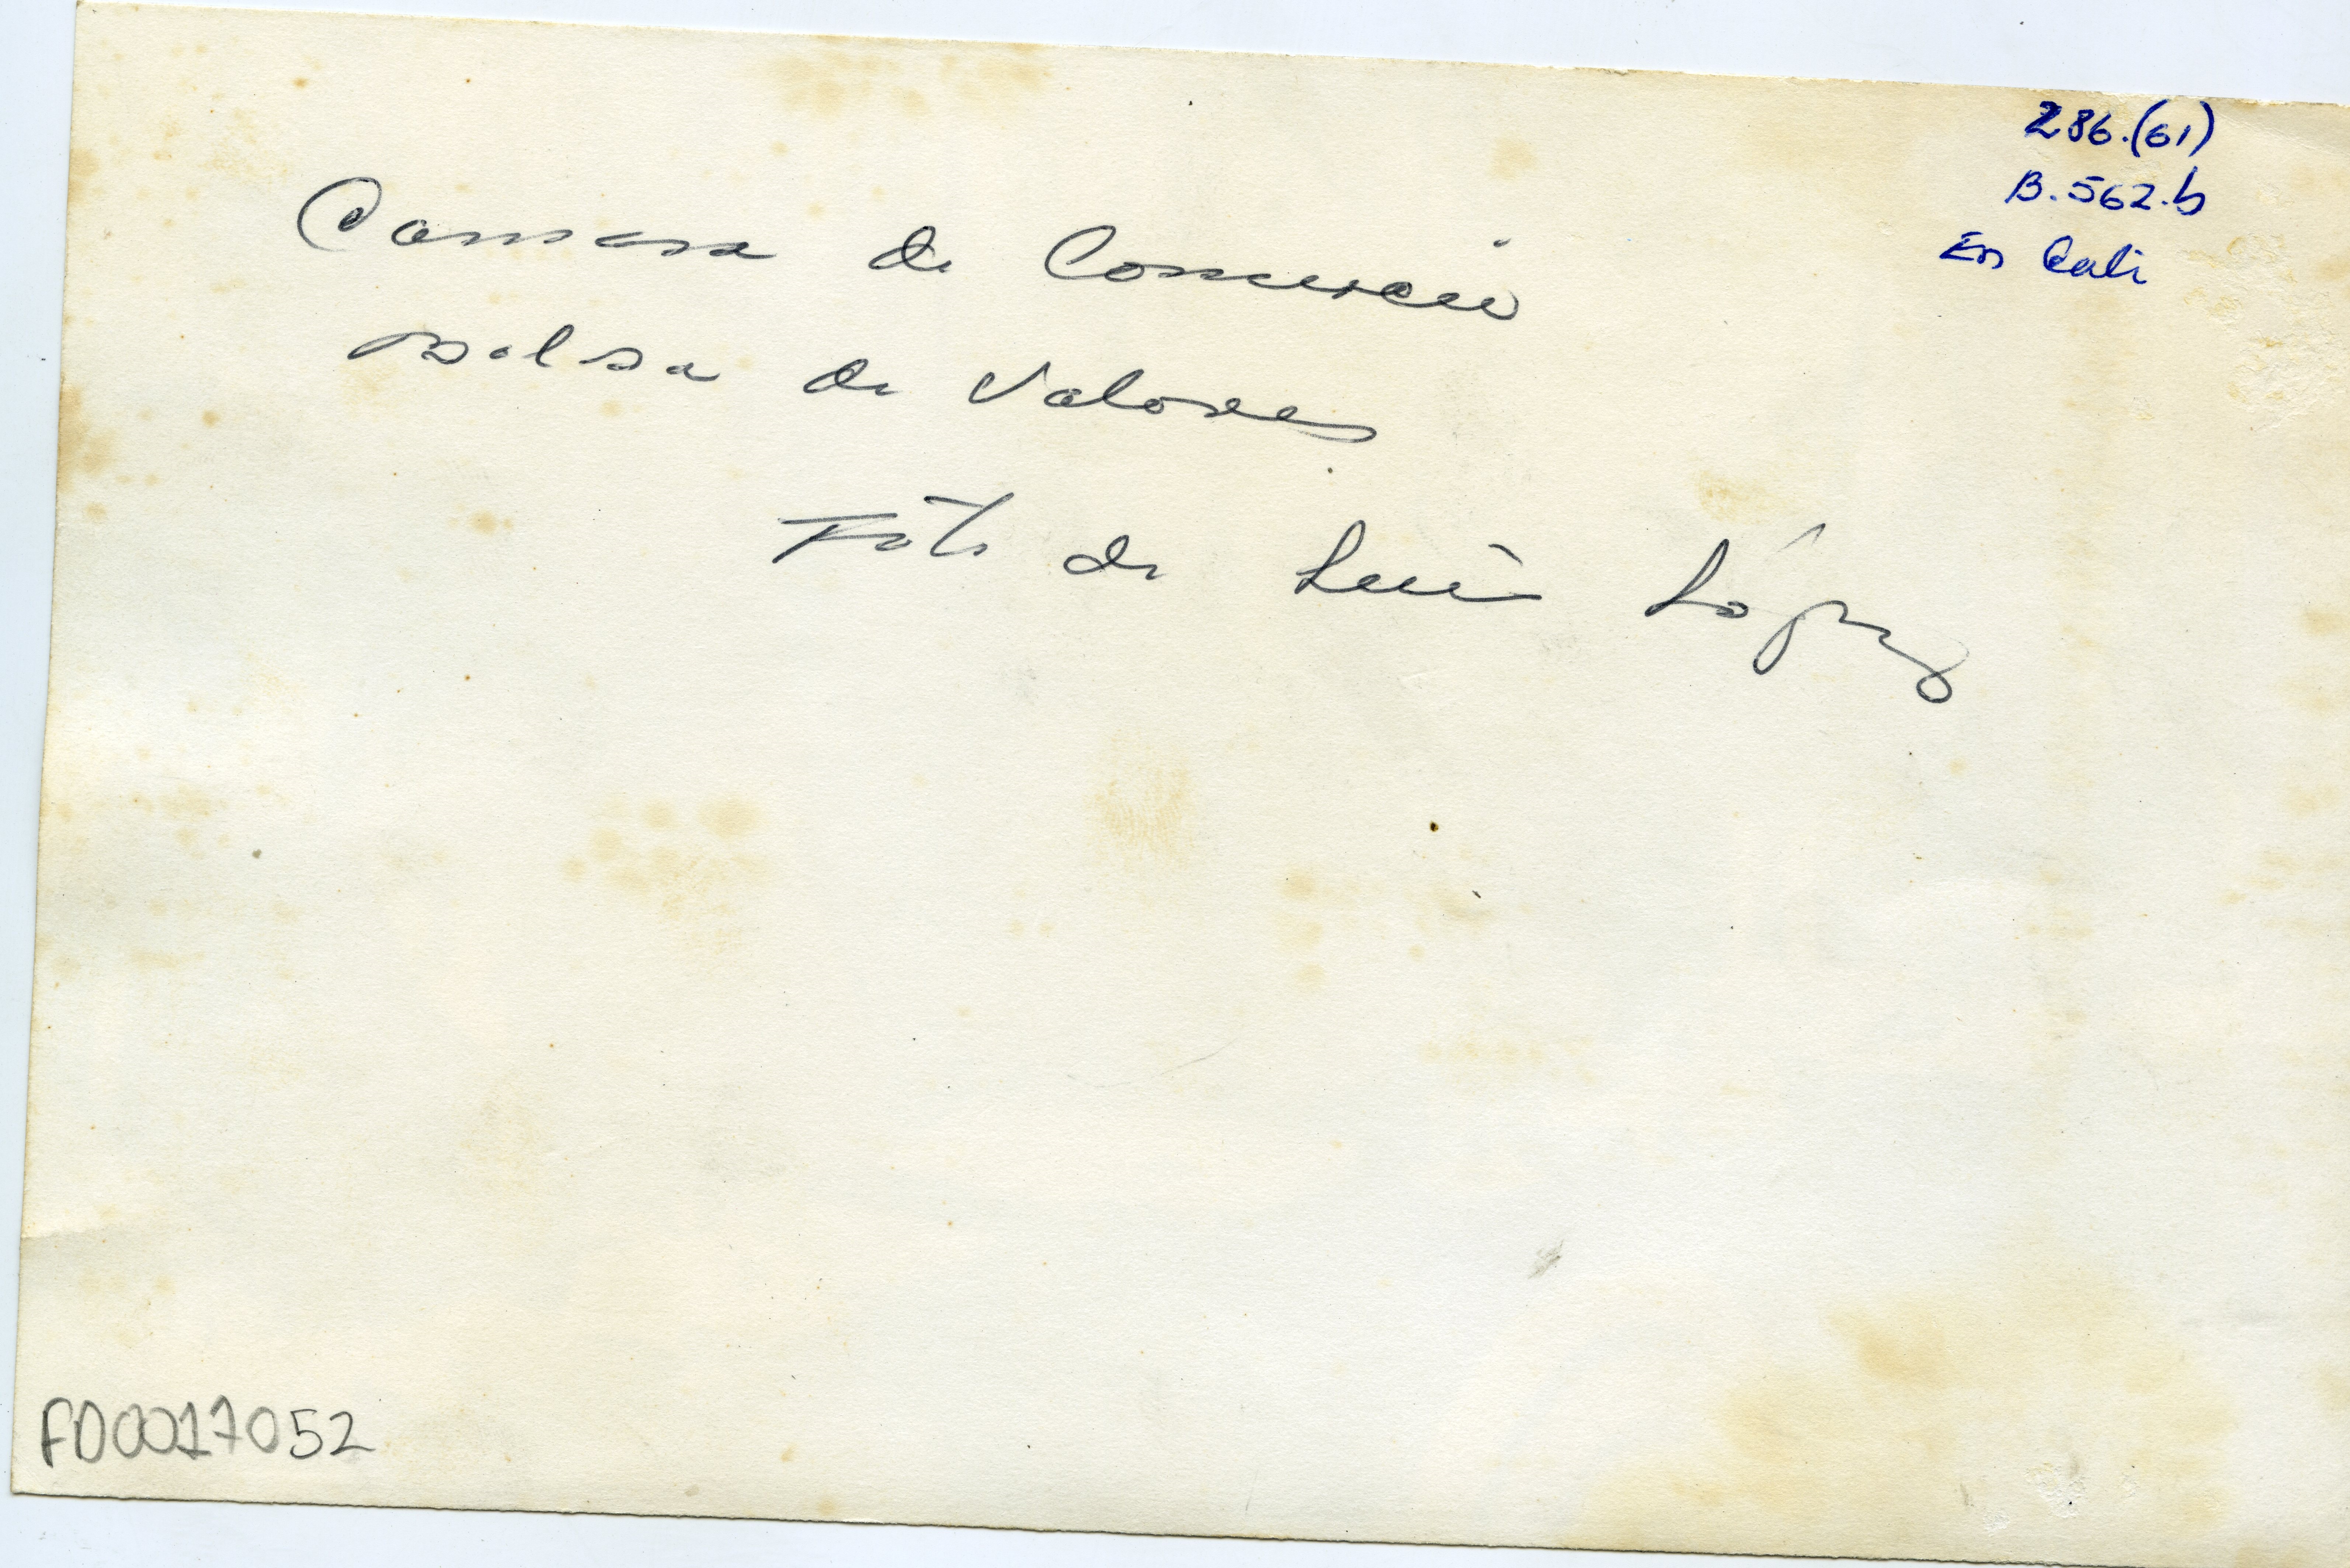 286.(61)
B.562.b
En Cali
Camara de Comercio
Bolsa de Valores
Foto de Luis López
FD0017052